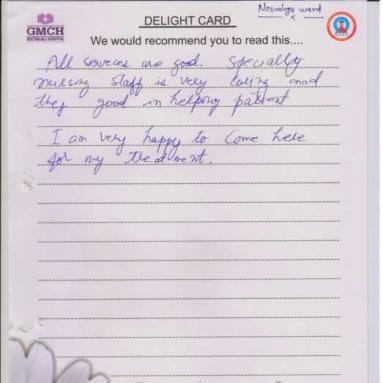 Neurology ward
GMCH
GEETANJALI HOSPITAL
DELIGHT CARD
We would recommend you to read this....
All services are good. Specially
nursing staff is very caring and
they good in helping patient
I am very happy to come here
for my treatment.